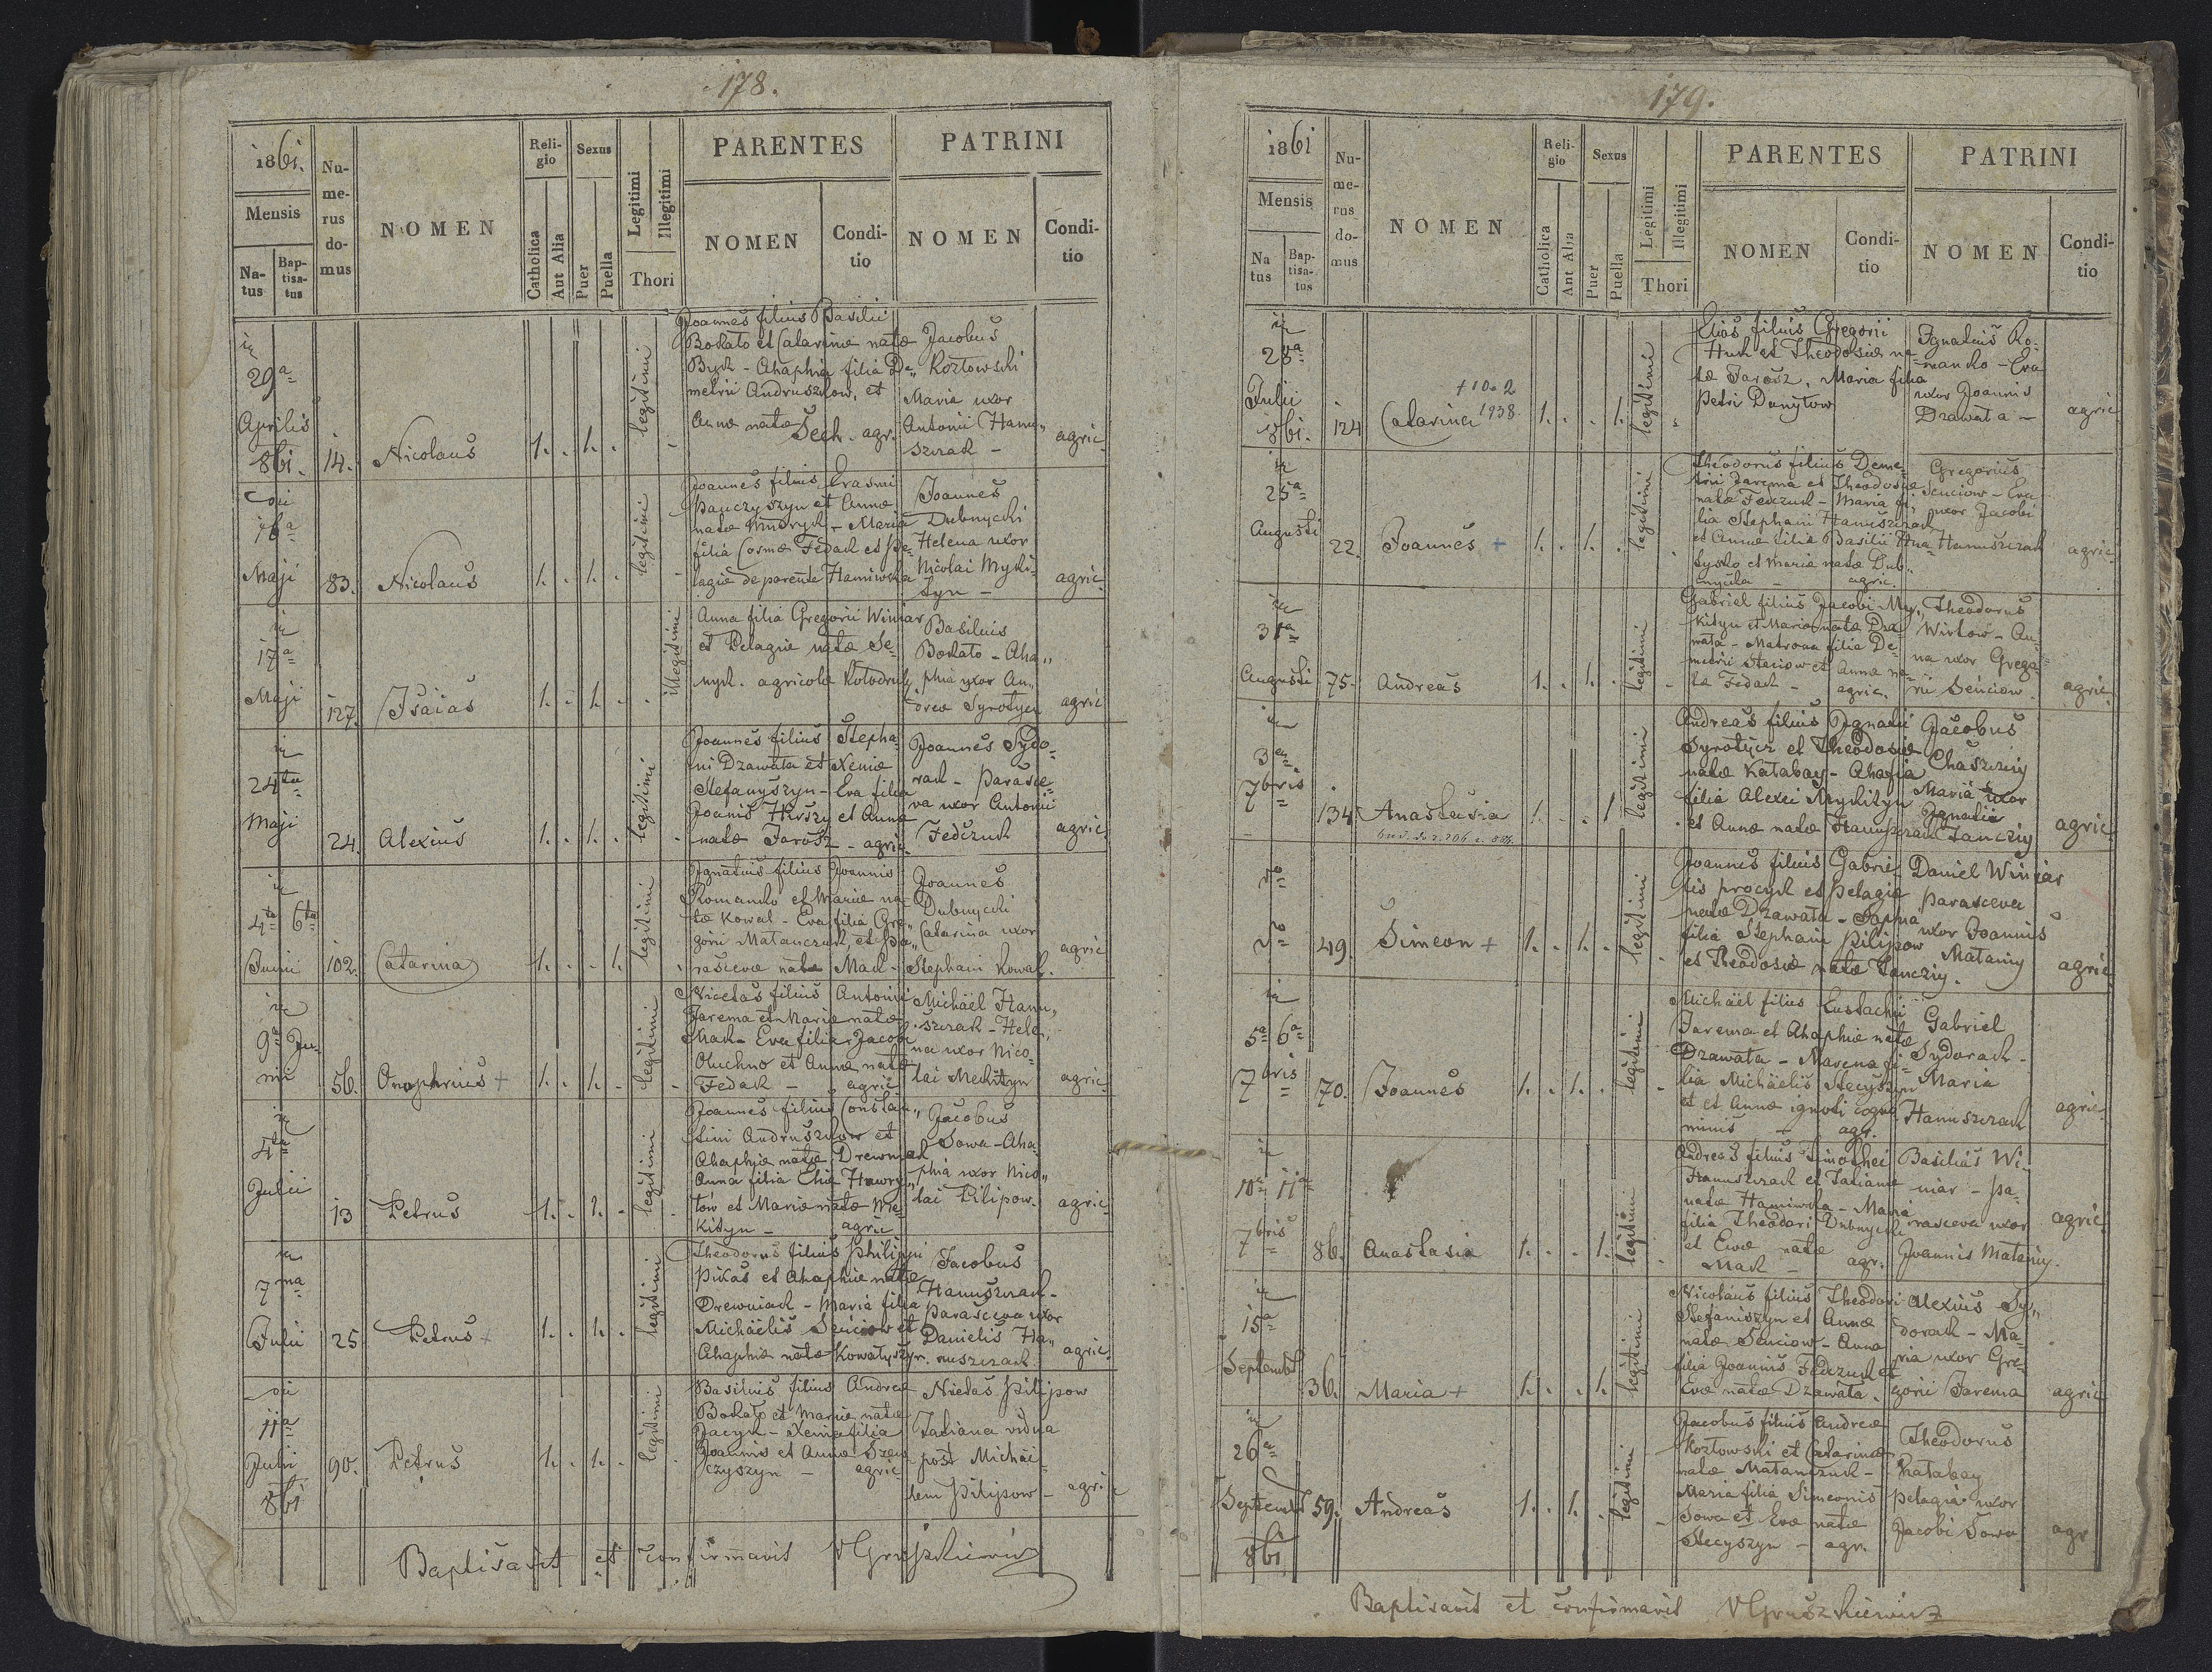 178.
1861.
Mensis
Natus
Baptisatus
Numerus domus
NOMEN
Religio
Catholica
Aut Alia
Sexus
Puer
Puella
Legitimi
Illegitimi
Thori
PARENTES
NOMEN
Conditio
PATRINI
NOMEN
Conditio
29a
Aprilis
861.
14.
Nicolaus
1.
1.
legitimi
Joannes filius Basilii
Bokało et Catarinæ natæ
Byck - Ahaphia filia De„
metrii Andruszkow, et
Annæ natæ Sech. agr.
Jacobus
Kozłowski
Maria uxor
Antonii Hanu„
szczak -
agric.
16a
Maji
83.
Nicolaus
1.
1.
legitimi
Joannes filius Erasmi
Panczyszyn et Annæ
natæ - Maria
filia Cosmæ Fedak et Pe„
lagiæ de parente Haniwska
Joannes
Dubnycki
Helena uxor
Nicolai Myki„
tyn -
agric.
17a
Maji
127.
Isaias
1.
1.
illegitimi
Anna filia Gregorii Winiar
et Pelagiæ natæ Se„
nyk. agricolæ
Basilius
Bokało - Aha„
phia uxor An„
dreæ Syrotycz
agric.
24ta
Maji
24.
Alexius
1.
1.
legitimi
Joannes filius Stepha„
ni Dzawała et Xeniæ
Stefanyszyn - Eva filia
Joanis et Annæ
natæ Jarosz - agric.
Joannes Sydo„
rak - Parasce„
va uxor Antonii
Fedczuk
agric.
4ta 6ta
Junii
102.
Catarina
1.
1.
legitimi
Ignatius filius Joannis
Romanko et Mariæ na„
tæ Kowal - Eva filia Gre„
gorii Matanczuk, et Pa„
rascevæ natæ Mak -
Joannes
Dubnycki
Catarina uxor
Stephani Kowal.
agric.
9a Ju„
nii
56.
Onophrius +
1.
1.
legitimi
Nicetas filius Antonii
Jarema et Mariæ natæ
Mak - Eva filia Jacobi
Oluchno et Annæ natæ
Fedak - agric.
Michaël Hanu„
szczak - Hele„
na uxor Nico„
lai Mekityn
agric.
4ta
Julii
13
Petrus
1.
1.
legitimi
Joannes filius Constan„
tini Andruszkow et
Ahaphiæ natæ Drewniak
Anna filia Eliæ Hawry„
tow et Mariæ natæ Me„
kityn - agric.
Jacobus
Sowa - Aha„
phia uxor Nico„
lai Pilipow.
agric.
7ma
Julii
25
Petrus +
1.
1.
legitimi
Theodorus filius Philippi
Pikas et Ahaphiæ natæ
Drewniak - Maria filia
Michaëlis Senciow et
Ahaphiæ natæ Kowalyszyn.
Jacobus
Hanuszczak -
Parasceva uxor
Danielis Ha„
nuszczak.
agric.
11a
Julii
861
90.
Petrus
1.
1.
legitimi
Basilius filius Andreæ
Bokało et Mariæ natæ
Jacyk - Xenia filia
Joannis et Annæ Szew„
czyszyn - agric
Nicetas Pilipow
Tatiana vidua
post Michaë„
lem Pilipow -
agric
Baptisavit et confirmavit VGruszkiewicz
179.
1861
Mensis
Natus
Baptisatus
Numerus domus
NOMEN
Religio
Catholica
Aut Alia
Sexus
Puer
Puella
Legitimi
Illegitimi
Thori
PARENTES
NOMEN
Conditio
PATRINI
NOMEN
Conditio
28a
Julii
861.
124
Catarina
1938.
1.
1.
legitimi
Elias filius Gregorii
Huk et Theodosiæ na„
tæ Jarosz. Maria filia
Petri Danyłow
Ignatius Ro„
manko - Eva
uxor Joannis
Dzawała -
agric
25a
Augusti
22.
Joannes +
1.
1.
legitimi
Theodorus filius Deme„
trii Jarema et Theodosiæ
natæ Fedczuk - Maria fi„
lia Stephani Hanuszczak
et Annæ filiæ Basilii Hna
tysko et Mariæ natæ Dub„
nycka - agric.
Gregorius
Senciow - Eva
uxor Jacobi
Hanuszczak
agric.
31a
Augusti
75.
Andreas
1.
1.
legitimi
Gabriel filius Jacobi My„
kityn et Mariæ natæ Dza
wała - Matrona filia De„
metrii Steciow et Annæ na„
tæ Fedak - agric.
Theodorus
Wirlow - An„
na uxor Grego„
rii Senciow.
agric.
3a
7bris
134
Anastasia
1.
1
legitimi
Andreas filius Ignatii
Syrotycz et Theodosiæ
natæ Katabay - Ahafia
filia Alexii Mykityn
et Annæ natæ Hanuszczak
Jacobus
Chaszczij
Maria uxor
Ignatii
Lanczij
agric.
do
do
49.
Simeon +
1.
1.
legitimi
Joannes filius Gabrie„
lis Procyk et Pelagiæ
natæ Dzawała - Sophia
filia Stephani Pilipow
et Theodosiæ natæ Lanczij.
Daniel Winiar
Parasceva
uxor Joannis
Matanij
agric
5a 6a
7bris
70.
Joannes
1.
1.
legitimi
Michaël filius Eustachii
Jarema et Ahaphiæ natæ
Dzawała - Marena fi„
lia Michaëlis Stecyszyn
et et Annæ ignoti cogno
minis - agr.
Gabriel
Sydorak -
Maria
Hanuszczak
agric.
10a 11a
7bris
86.
Anastasia
1.
1.
legitimi
Andreas filius Timothei
Hanuszczak et Tatianæ
natæ Haniwska - Maria
filia Theodori Dubnycki
et Evæ natæ
Mak - agr.
Basilius Wi„
niar - Pa„
rasceva uxor
Joannis Matanij.
agric.
15a
Septembr
36.
Maria +
1.
1.
legitimi
Nicolaus filius Theodori
Stefaniszyn et Annæ
natæ Senciow - Anna
filia Joannis Fedczuk et
Evæ natæ Dzawała.
Alexius Sy„
dorak - Ma„
ria uxor Gre„
gorii Jarema
agric
26a
Septembr
861
59.
Andreas
1.
1.
legitimi
Jacobus filius Andreæ
Kozłowski et Catarinæ
natæ Matanczuk -
Maria filia Simeonis
Sowa et Evæ natæ
Stecyszyn - agr.
Theodorus
Katabay
Pelagia uxor
Jacobi Sowa
agr
Baptisavit et confirmavit VGruszkiewicz